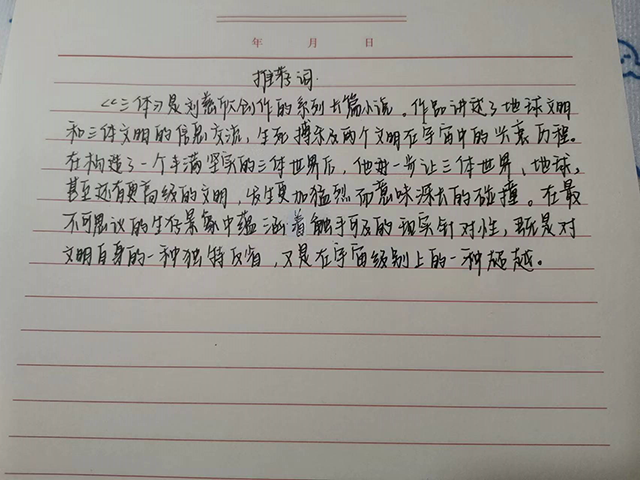 年 月 日
推荐词
《三体》是刘慈欣创作的系列长篇小说。作品讲述了地球文明
和三体文明的信息交流,生死搏杀及两个文明在宇宙中的兴衰历程。
在构造了一个丰满坚实的三体世界后,他进一步让三体世界、地球,
甚至还有更高级的文明,发生更加猛烈而意味深长的碰撞。在最
不可思议的生存景象中蕴涵着触手可及的现实针对性,既是对
文明自身的一种独特反省,又是在宇宙级别上的一种超越。